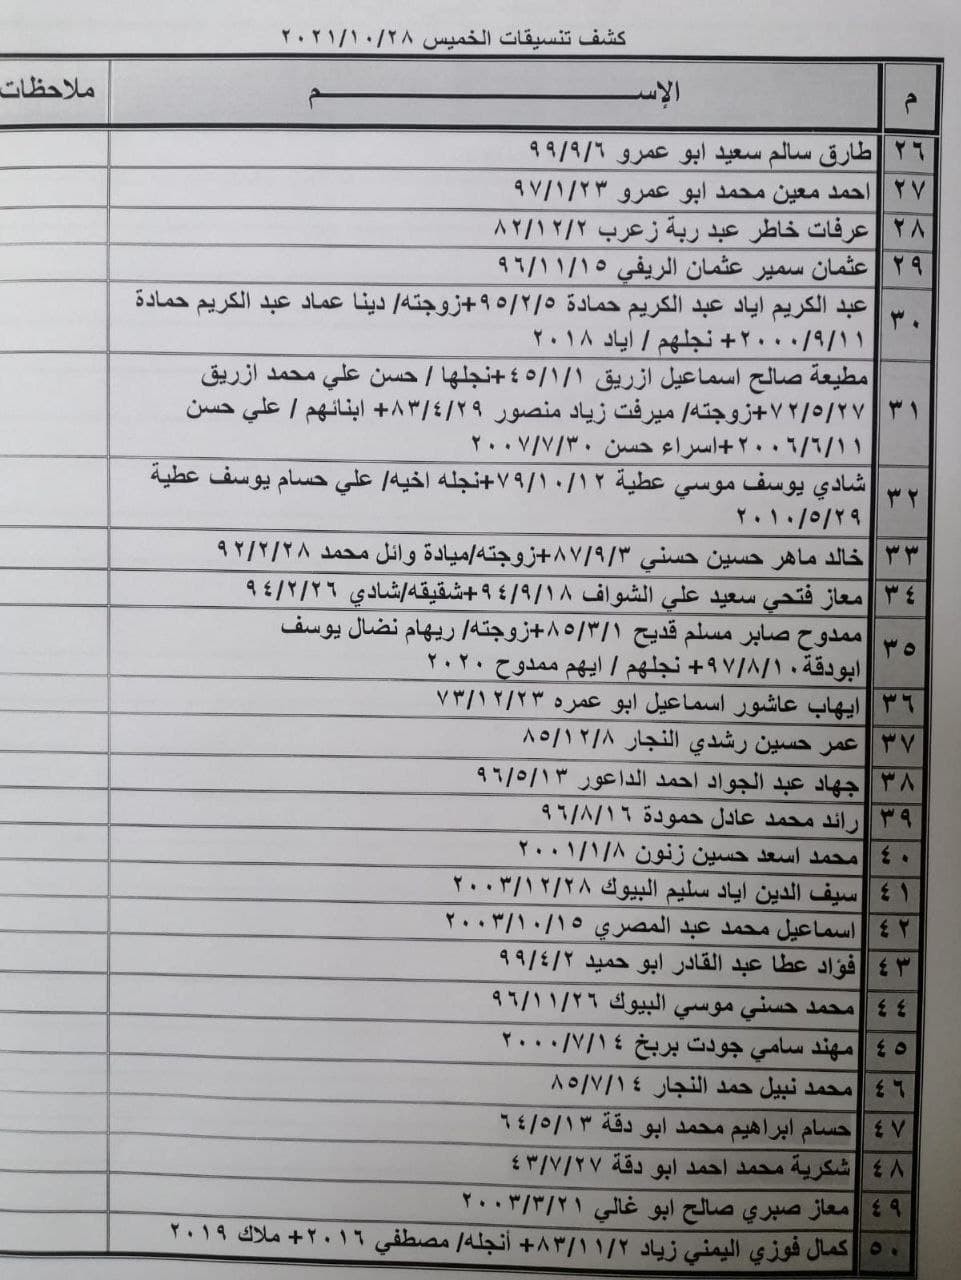 كشف تنسيقات الخميس ٢٠٢١/١٠/٢٨
م الإســــــــم ملاحظات
٢٦ طارق سالم سعيد ابو عمرو ٩٩/٩/٦
٢٧ احمد معين محمد ابو عمرو ٩٧/١/٢٣
٢٨ عرفات خاطر عبد ربة زعرب ٨٢/١٢/٢
٢٩ عثمان سمير عثمان الريفي ٩٦/١١/١٥
٣٠ عبد الكريم اياد عبد الكريم حمادة ٩٥/٢/٥+زوجته/ دينا عماد عبد الكريم حمادة
٢٠٠٠/٩/١١+ نجلهم / اياد ٢٠١٨
٣١ مطيعة صالح اسماعيل ازريق ٤٥/١/١+نجلها / حسن علي محمد ازريق
٧٢/٥/٢٧+زوجته/ ميرفت زياد منصور ٨٣/٤/٢٩+ ابنائهم / علي حسن
٢٠٠٦/٦/١١+اسراء حسن ٢٠٠٧/٧/٣٠
٣٢ شادي يوسف موسي عطية ٧٩/١٠/١٢+نجله اخيه/ علي حسام يوسف عطية
٢٠١٠/٥/٢٩
٣٣ خالد ماهر حسين حسني ٨٧/٩/٣+زوجته/ميادة وائل محمد ٩٢/٢/٢٨
٣٤ معاز فتحي سعيد علي الشواف ٩٤/٩/١٨+شقيقه/شادي ٩٤/٢/٢٦
٣٥ ممدوح صابر مسلم قديح ٨٥/٣/١+زوجته/ ريهام نضال يوسف
ابودقة٩٧/٨/١٠+ نجلهم / ايهم ممدوح ٢٠٢٠
٣٦ ايهاب عاشور اسماعيل ابو عمره ٧٣/١٢/٢٣
٣٧ عمر حسين رشدي النجار ٨٥/١٢/٨
٣٨ جهاد عبد الجواد احمد الداعور ٩٦/٥/١٣
٣٩ رائد محمد عادل حمودة ٩٦/٨/١٦
٤٠ محمد اسعد حسين زنون ٢٠٠١/١/٨
٤١ سيف الدين اياد سليم البيوك ٢٠٠٣/١٢/٢٨
٤٢ اسماعيل محمد عبد المصري ٢٠٠٣/١٠/١٥
٤٣ فؤاد عطا عبد القادر ابو حميد ٩٩/٤/٢
٤٤ محمد حسني موسي البيوك ٩٦/١١/٢٦
٤٥ مهند سامي جودت بربخ ٢٠٠٠/٧/١٤
٤٦ محمد نبيل حمد النجار ٨٥/٧/١٤
٤٧ حسام ابراهيم محمد ابو دقة ٦٤/٥/١٣
٤٨ شكرية محمد احمد ابو دقة ٤٣/٧/٢٧
٤٩ معاز صبري صالح ابو غالي ٢٠٠٣/٣/٢١
٥٠ كمال فوزي اليمني زياد ٨٣/١١/٢+ أنجله/ مصطفي ٢٠١٦+ ملاك ٢٠١٩